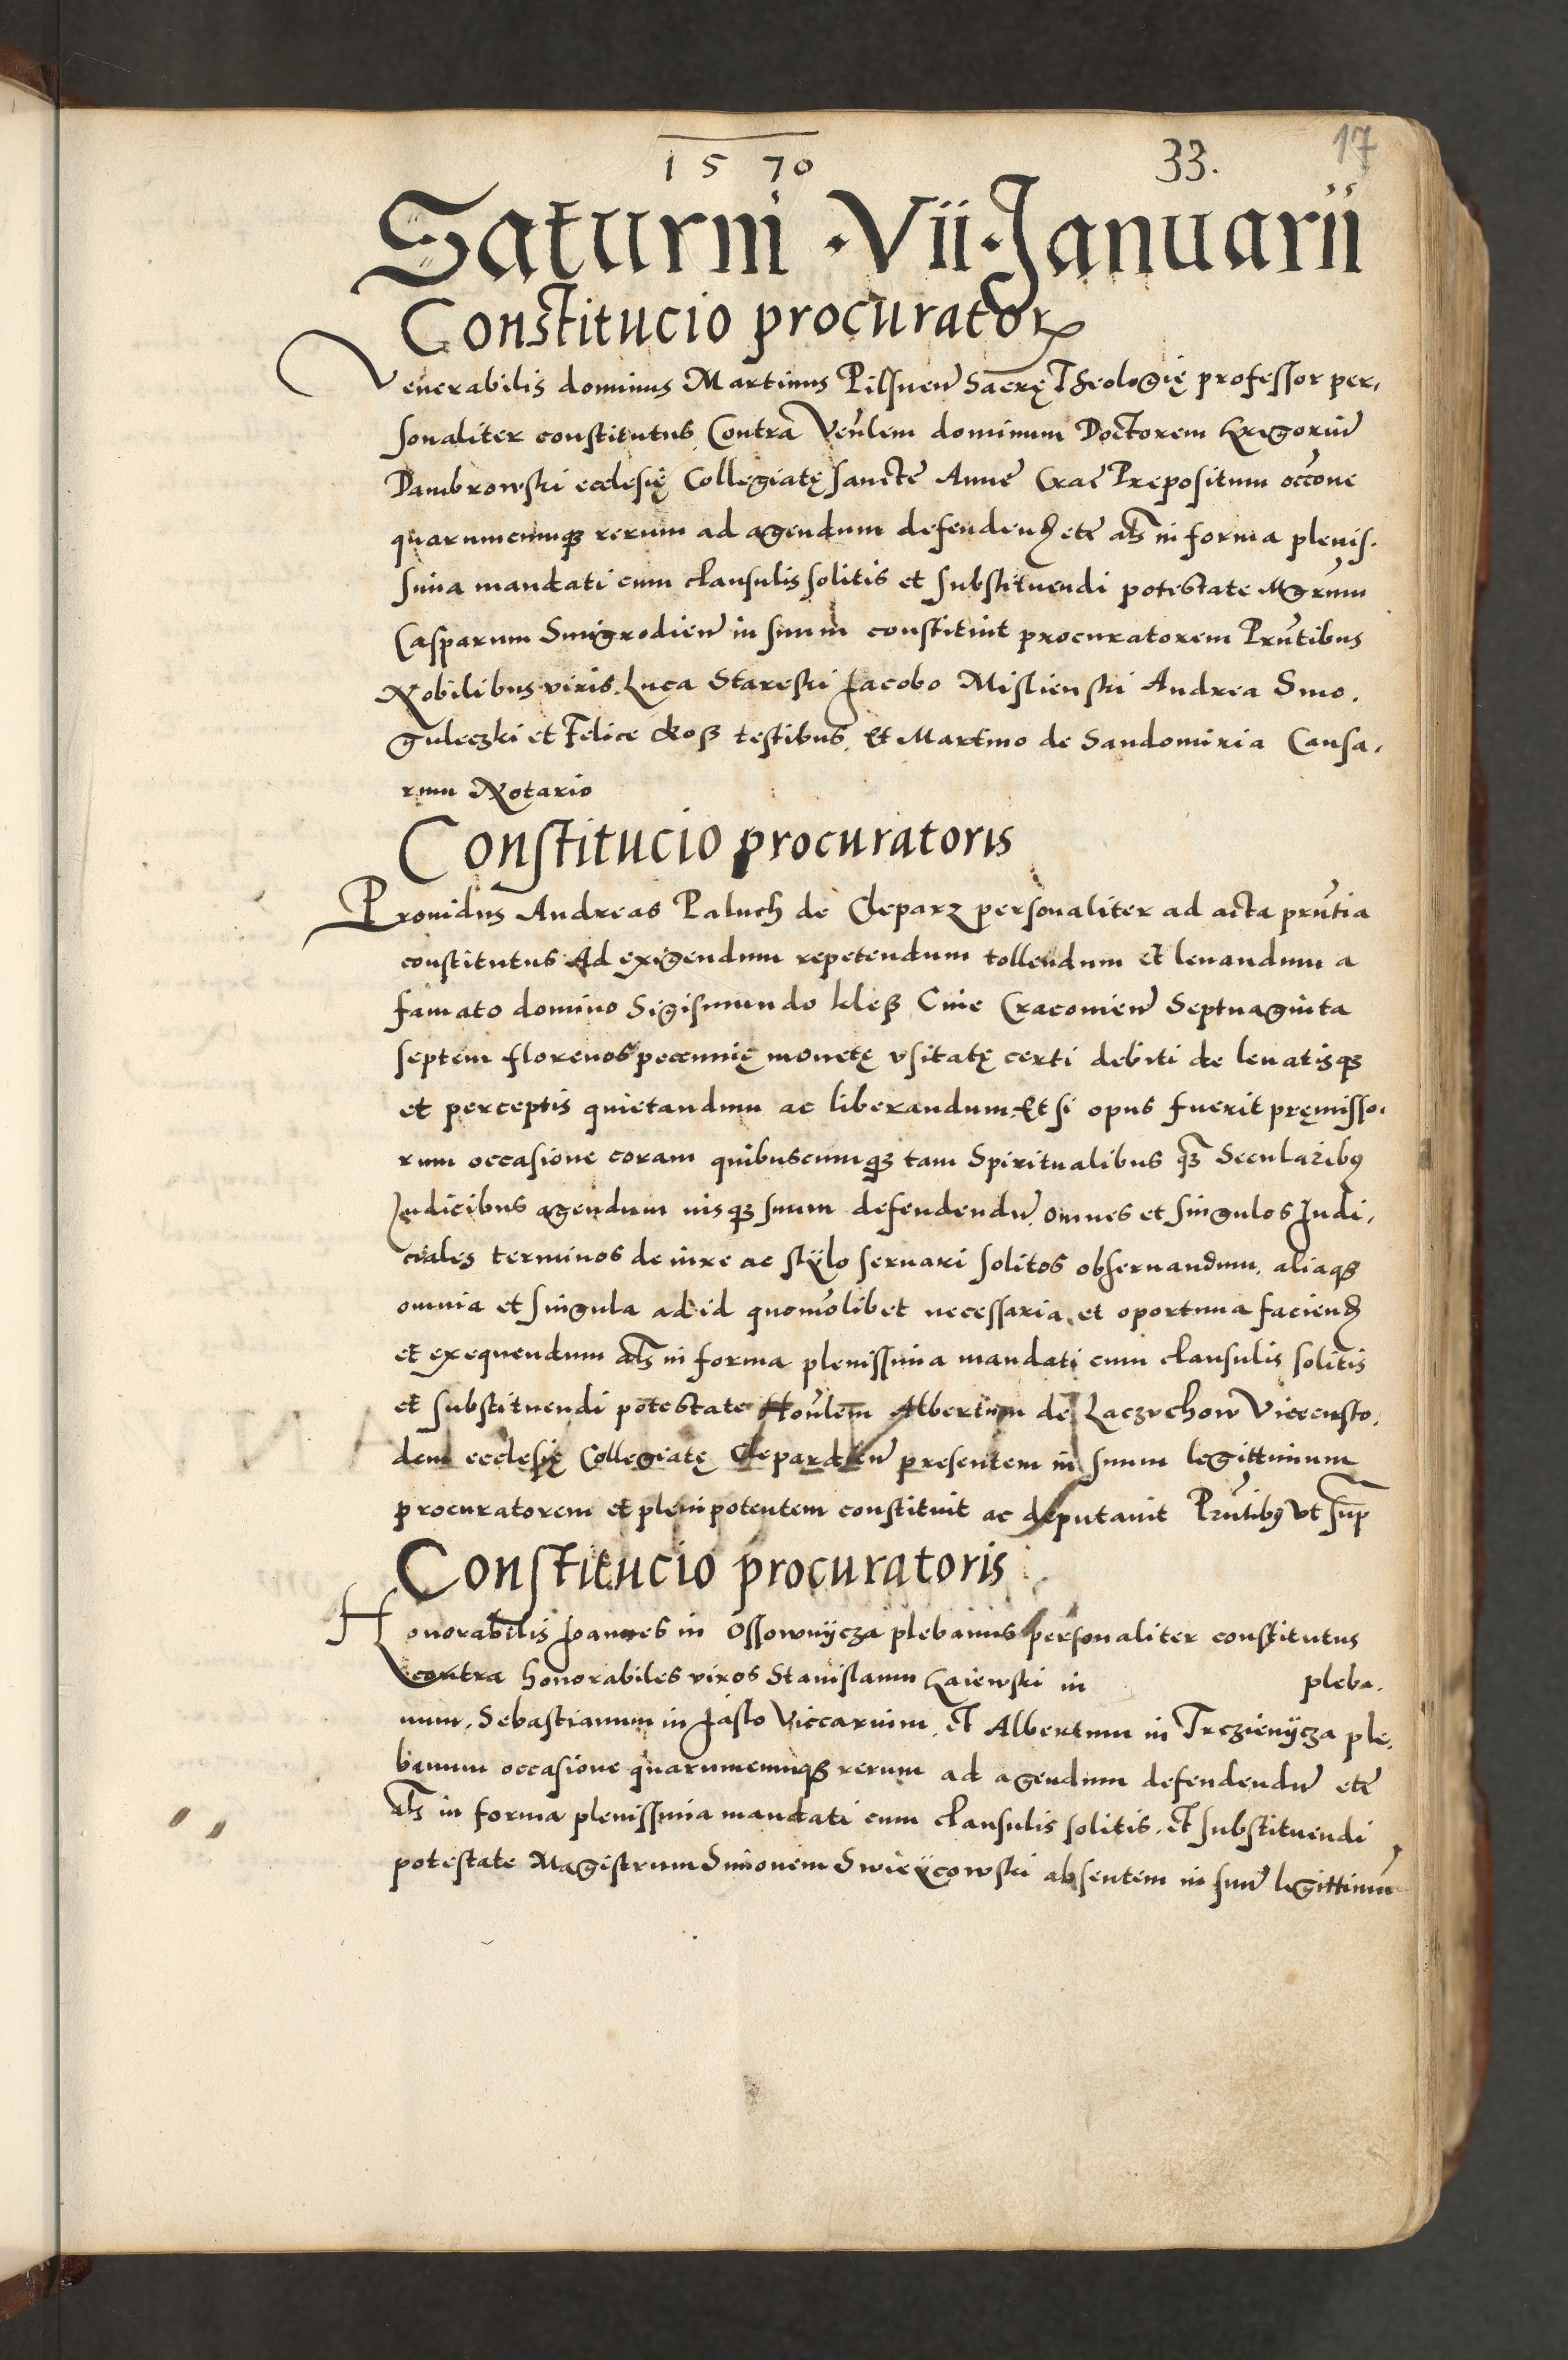 1570 33. 17
Saturni · Vii · Januarii
Constitucio procuratorꝝ
Venerabilis dominus Martinus Pilsnen̄ Sacrę Theologię professor per,
sonaliter constitutus Contra Ven̄lem dominum Doctorem Gregoriū
Dambrowski ecclesię Collegiatę sancte Anne Crac̄ Prepositum occ̄one
quarumcumqꝫ rerum ad agendum defendend̄ etc̄ al̄s in forma plenis.
sima mandati cum clausulis solitis et substituendi potestate Mgr̄um
Casparum Smigrodien̄ in suum constituit procuratorem Prn̄tibus
Nobilibus viris. Luca Stareski Jacobo Mislienski Andrea Smo.
guleczki et Felice testibus. Et Martino de Sandomiria Causa,
rum Notario
Constitucio procuratoris
Prouidus Andreas Paluch de Cleparz personaliter ad acta prn̄tia
constitutus Ad exigendum repetendum tollendum et leuandum a
famato domino Sigismundo Ciue Cracouien̄ Septuaginta
septem florenos pecunię monetę vsitatę certi debiti de leuatisqꝫ
et perceptis quietandum ac liberandum. Et si opus fuerit pręmisso,
rum occasione coram quibuscumqꝫ tam Spiritualibus qꝫ̄ Secularibꝰ
Judicibus agendum iusqꝫ suum defendendū. omnes et singulos Judi,
ciales terminos de iure ac stÿlo seruari solitos obseruandum. aliaqꝫ
omnia et singula ad id quomōlibet necessaria. et oportuna faciend̄
et exequendum al̄s in forma plenissima mandati cum clausulis solitis
et substituendi potestate Hon̄lem Albertum de Laczuchow Vicecusto,
dem ecclesię Collegiatę Clepardien̄ presentem in suum legittimum
procuratorem et plenipotentem constituit ac deputauit Prn̄tibꝰ vt sup̄
Constitucio procuratoris
Honorabilis Joannes in Ossownÿcza plebanus personaliter constitutus
contra honorabiles viros Stanislaum Gaiewski in pleba.
num. Sebastianum in Jasło Viccarium. et Albertum in Trczienÿcza ple.
banum occasione quarumcumqꝫ rerum ad agendum defendendū etc̄
al̄s in forma plenissima mandati cum clausulis solitis. et substituendi
potestate Magistrum Simonem Swieÿcowski absentem in suū legittimū